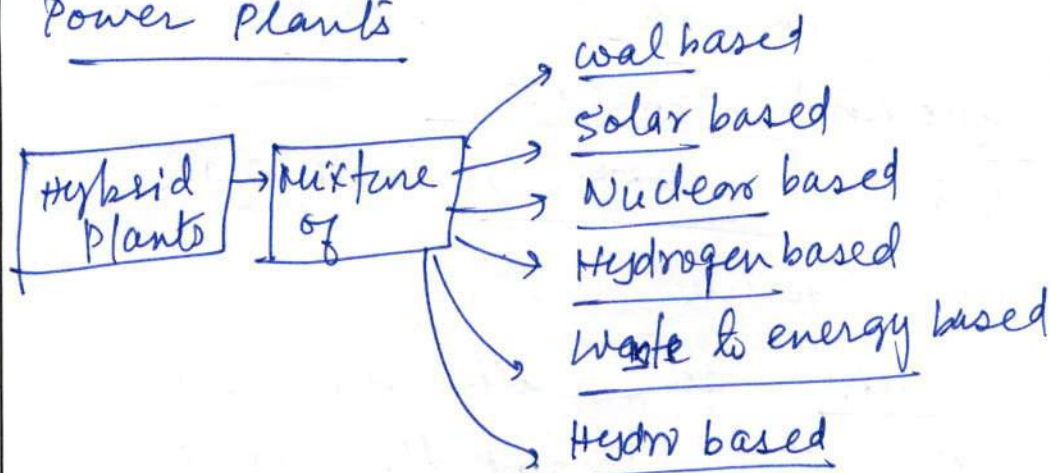 Power Plants
Hybrid
Plants
Mixture
of
coal based
Solar based
Nuclear based
Hydrogen based
Waste to energy based
Hydro based